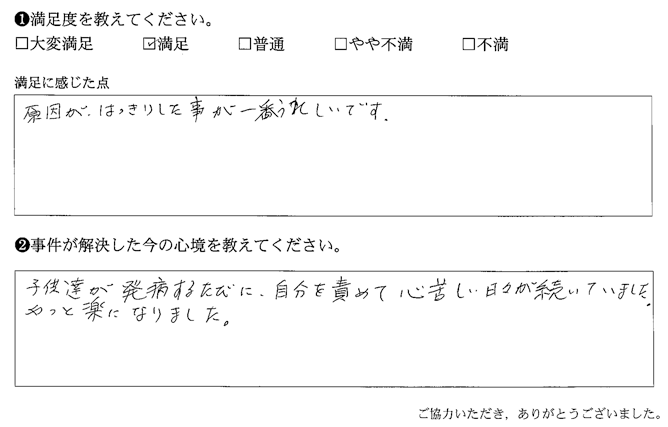 ❶満足度を教えてください。
□大変満足 ☑満足 □普通 □やや不満 □不満
満足に感じた点
原因が、はっきりした事が一番うれしいです.
❷事件が解決した今の心境を教えてください。
子供達が発病するたびに、自分を責めて心苦しい日々が続いていました。
やっと楽になりました。
ご協力いただき，ありがとうございました。